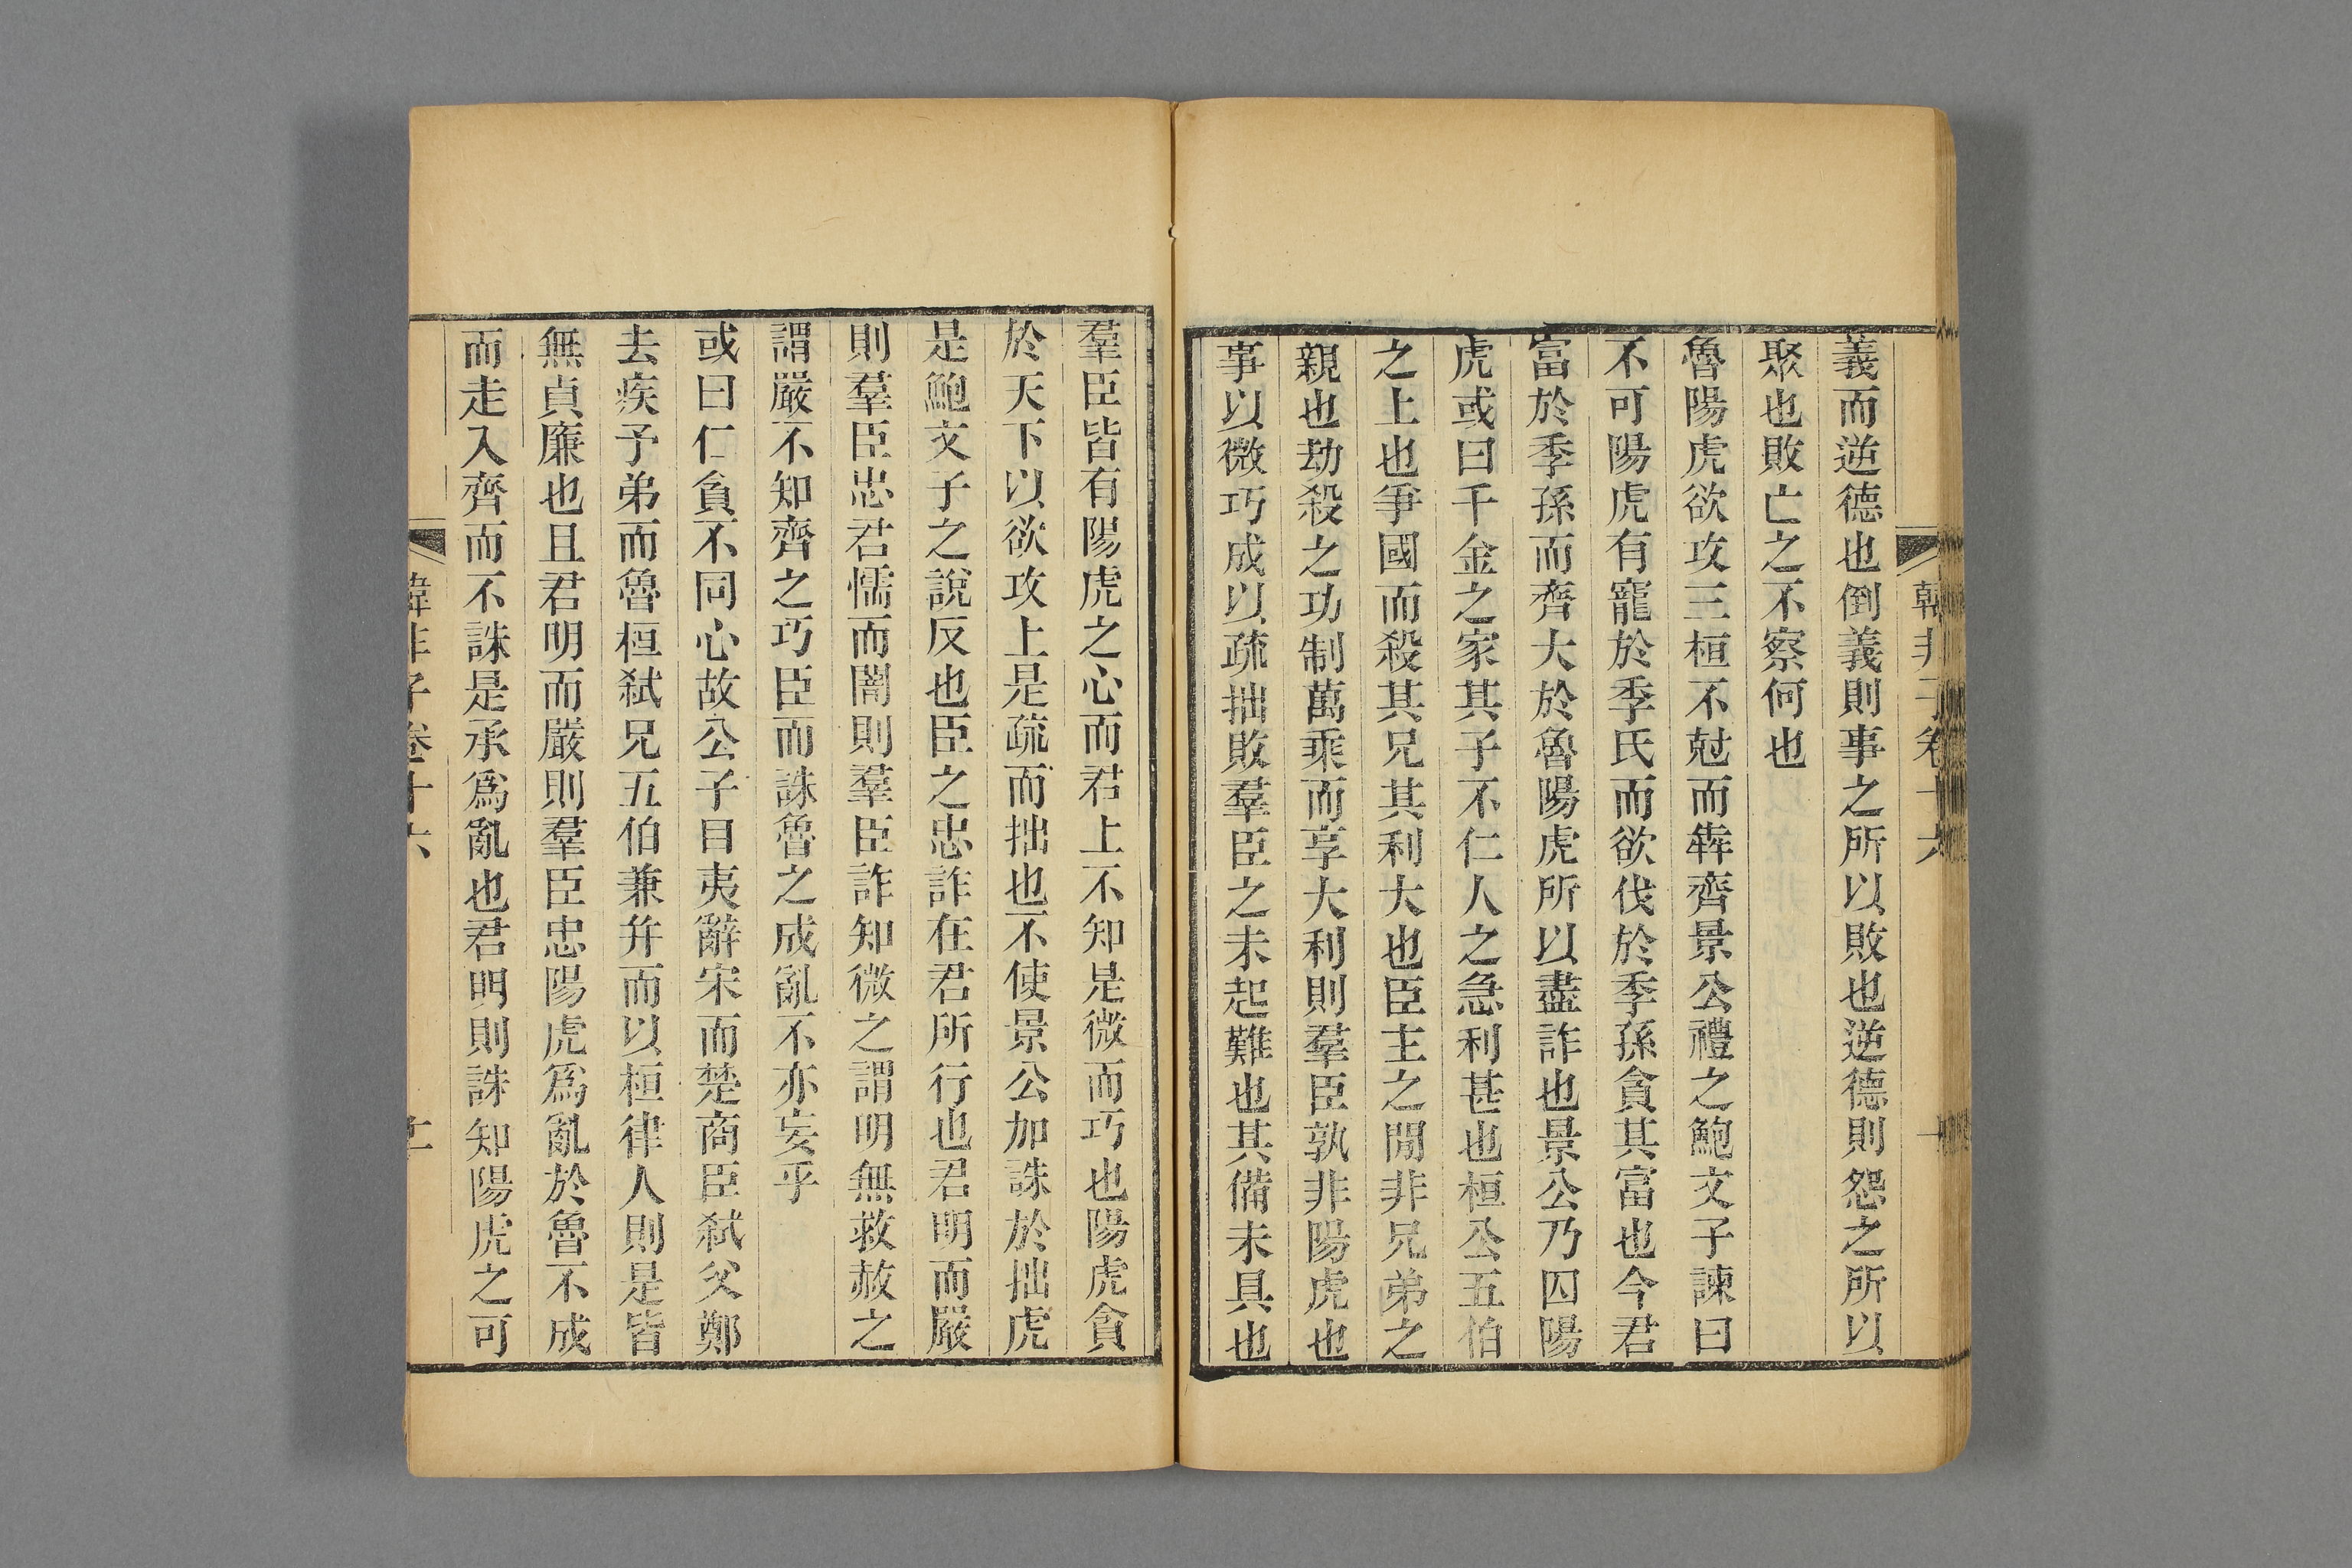 韓非子卷十六
義而逆德也倒義則事之所以敗也逆德則怨之所以
聚也敗亡之不察何也
魯陽虎欲攻三桓不尅而犇齊景公禮之鮑文子諫曰
不可陽虎有寵於季氏而欲伐於季孫貪其富也今君
富於季孫而齊大於魯陽虎所以盡詐也景公乃囚陽
虎或曰千金之家其子不仁人之急利甚也桓公五伯
之上也爭國而殺其兄其利大也臣主之閒非兄弟之
親也劫殺之功制萬乘而享大利則羣臣孰非陽虎也
事以微巧成以疏拙敗羣臣之未起難也其備未具也
羣臣皆有陽虎之心而君上不知是微而巧也陽虎貪
於天下以欲攻上是疏而拙也不使景公加誅於拙虎
是鮑文子之說反也臣之忠詐在君所行也君明而嚴
則羣臣忠君懦而闇則羣臣詐知微之謂明無救赦之
謂嚴不知齊之巧臣而誅魯之成亂不亦妄乎
或曰仁貪不同心故公子目夷辭宋而楚商臣弑父鄭
去疾予弟而魯桓弑兄五伯兼并而以桓律人則是皆
無貞廉也且君明而嚴則羣臣忠陽虎爲亂於魯不成
而走入齊而不誅是承爲亂也君明則誅知陽虎之可
韓非子卷十六